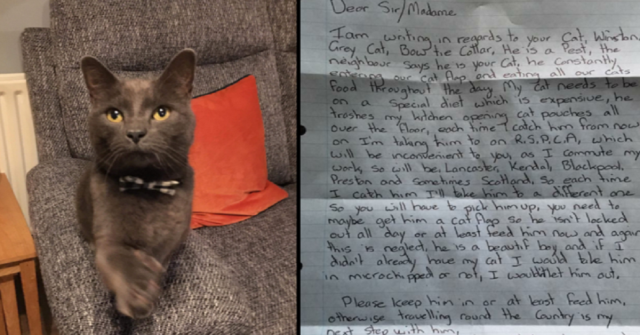 Dear Sir/Madame
I am writing in regards to your Cat, Winston,
Grey Cat, Bow tie Collar, He is a Pest, the
neighbour Says he is your Cat, he Constantly
entering our Cat flap and eating all our cats
food throughout the day. My Cat needs to be
on a Special diet which is expensive, he
trashes my kitchen opening cat pouches all
over the floor, each time I catch him from now
on I'm taking him to an R.S.P.C.A, which
will be inconvenient to you, as I commute my
work, so will be, Lancaster, Kendal, Blackpool
Preston and sometimes Scotland, So each time
I catch him I'll take him to a different one
So you will have to pick him up, you need to
maybe get him a cat flap so he isn't locked
out all day or at least feed him now and again
this is neglect, he is a beautiful boy and if I
didn't already have my Cat I would take him
in microchipped or not, I wouldn't let him out.
Please keep him in or at least feed him,
otherwise travelling round the Country is my
next Step with him,